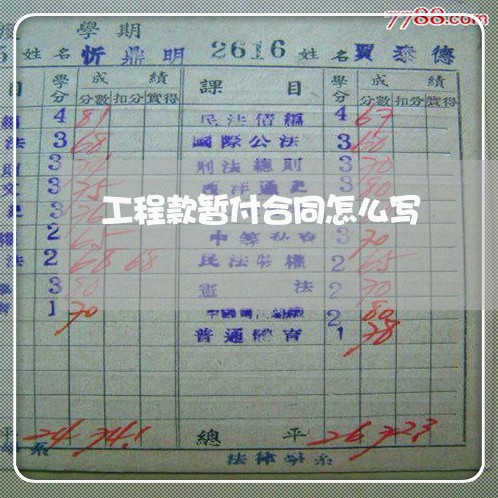 7788.com
學期
姓名 忻鼎明 2616 姓名 賈泰德
目 學分 成績 課目 學分 成績
分數 扣分 實得 分數 扣分 實得
4 81 民法債編 4 67
法 3 68 國際公法 3 60
3 刑法總則 3 70
文 3 75 西洋通史 3 80
工程款暂付合同怎么写
2 65 3 70
法 2 68 68 民法物權 2 65
3 80 憲法 2 70
1 70 2 80
普通體育 1 78
平 24 74.1 總平 26 72.3
系 法律學系